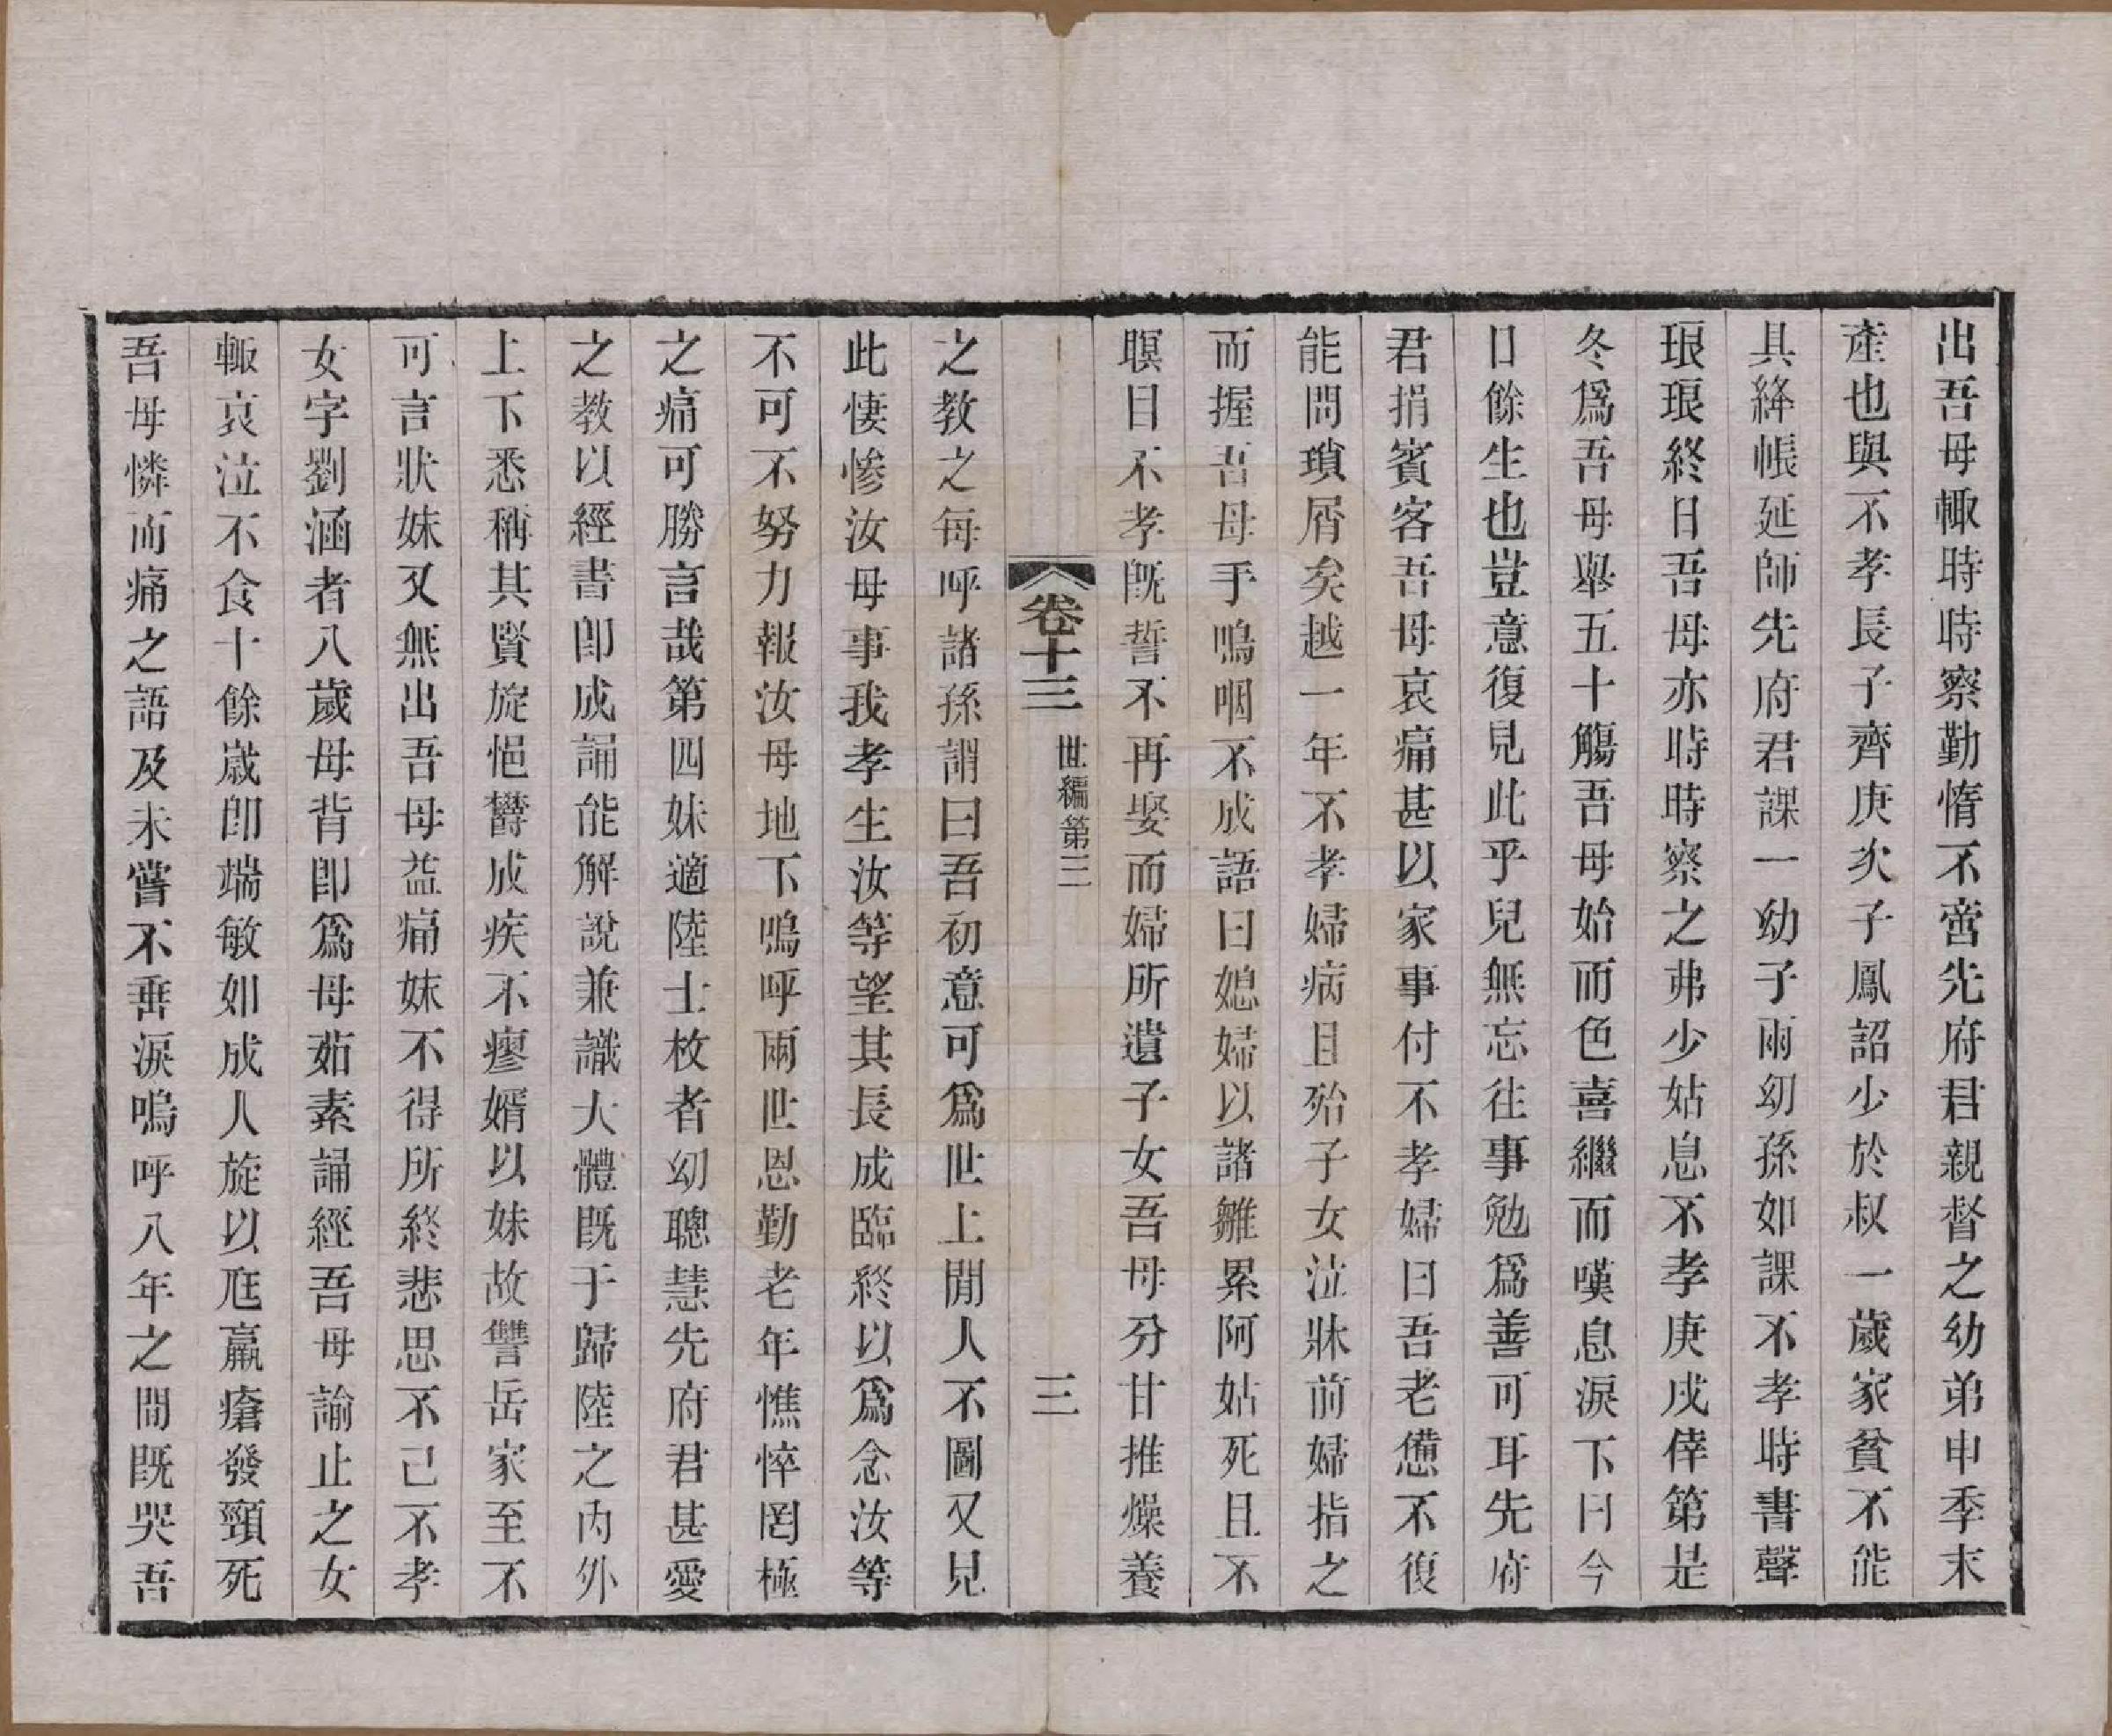 出吾母輙時時察勤惰不啻先府君親督之幼弟申季末
產也與不孝長子齊庚次子鳳詔少於叔一歲家貧不能
具絳帳延師先府君課一幼子兩幼孫如課不孝時書聲
琅琅終日吾母亦時時察之弗少姑息不孝庚戌倖第是
冬爲吾母舉五十觴吾母始而色喜繼而嘆息淚下曰今
日餘生也豈意復見此乎兒無忘往事勉爲善可耳先府
君捐賓客吾母哀痛甚以家事付不孝婦曰吾老憊不復
能問瑣屑矣越一年不孝婦病且殆子女泣牀前婦指之
而握吾母手嗚咽不成語曰媳婦以諸雛累阿姑死且不
瞑目不孝旣誓不再娶而婦所遺子女吾母分甘推燥養
卷十三 世編第三 三
之教之每呼諸孫謂曰吾初意可爲世上閒人不圖又見
此悽慘汝母事我孝生汝等望其長成臨終以爲念汝等
不可不努力報汝母地下嗚呼兩世恩勤老年憔悴罔極
之痛可勝言哉第四妹適陸士枚者幼聰慧先府君甚愛
之教以經書卽成誦能解說兼識大體旣于歸陸之內外
上下悉稱其賢旋悒鬱成疾不瘳婿以妹故讐岳家至不
可言狀妹又無出吾母益痛妹不得所終悲思不已不孝
女字劉涵者八歲母背卽爲母茹素誦經吾母諭止之女
輙哀泣不食十餘歲卽端敏如成人旋以尫羸瘡發頸死
吾母憐而痛之語及未嘗不垂淚嗚呼八年之間旣哭吾